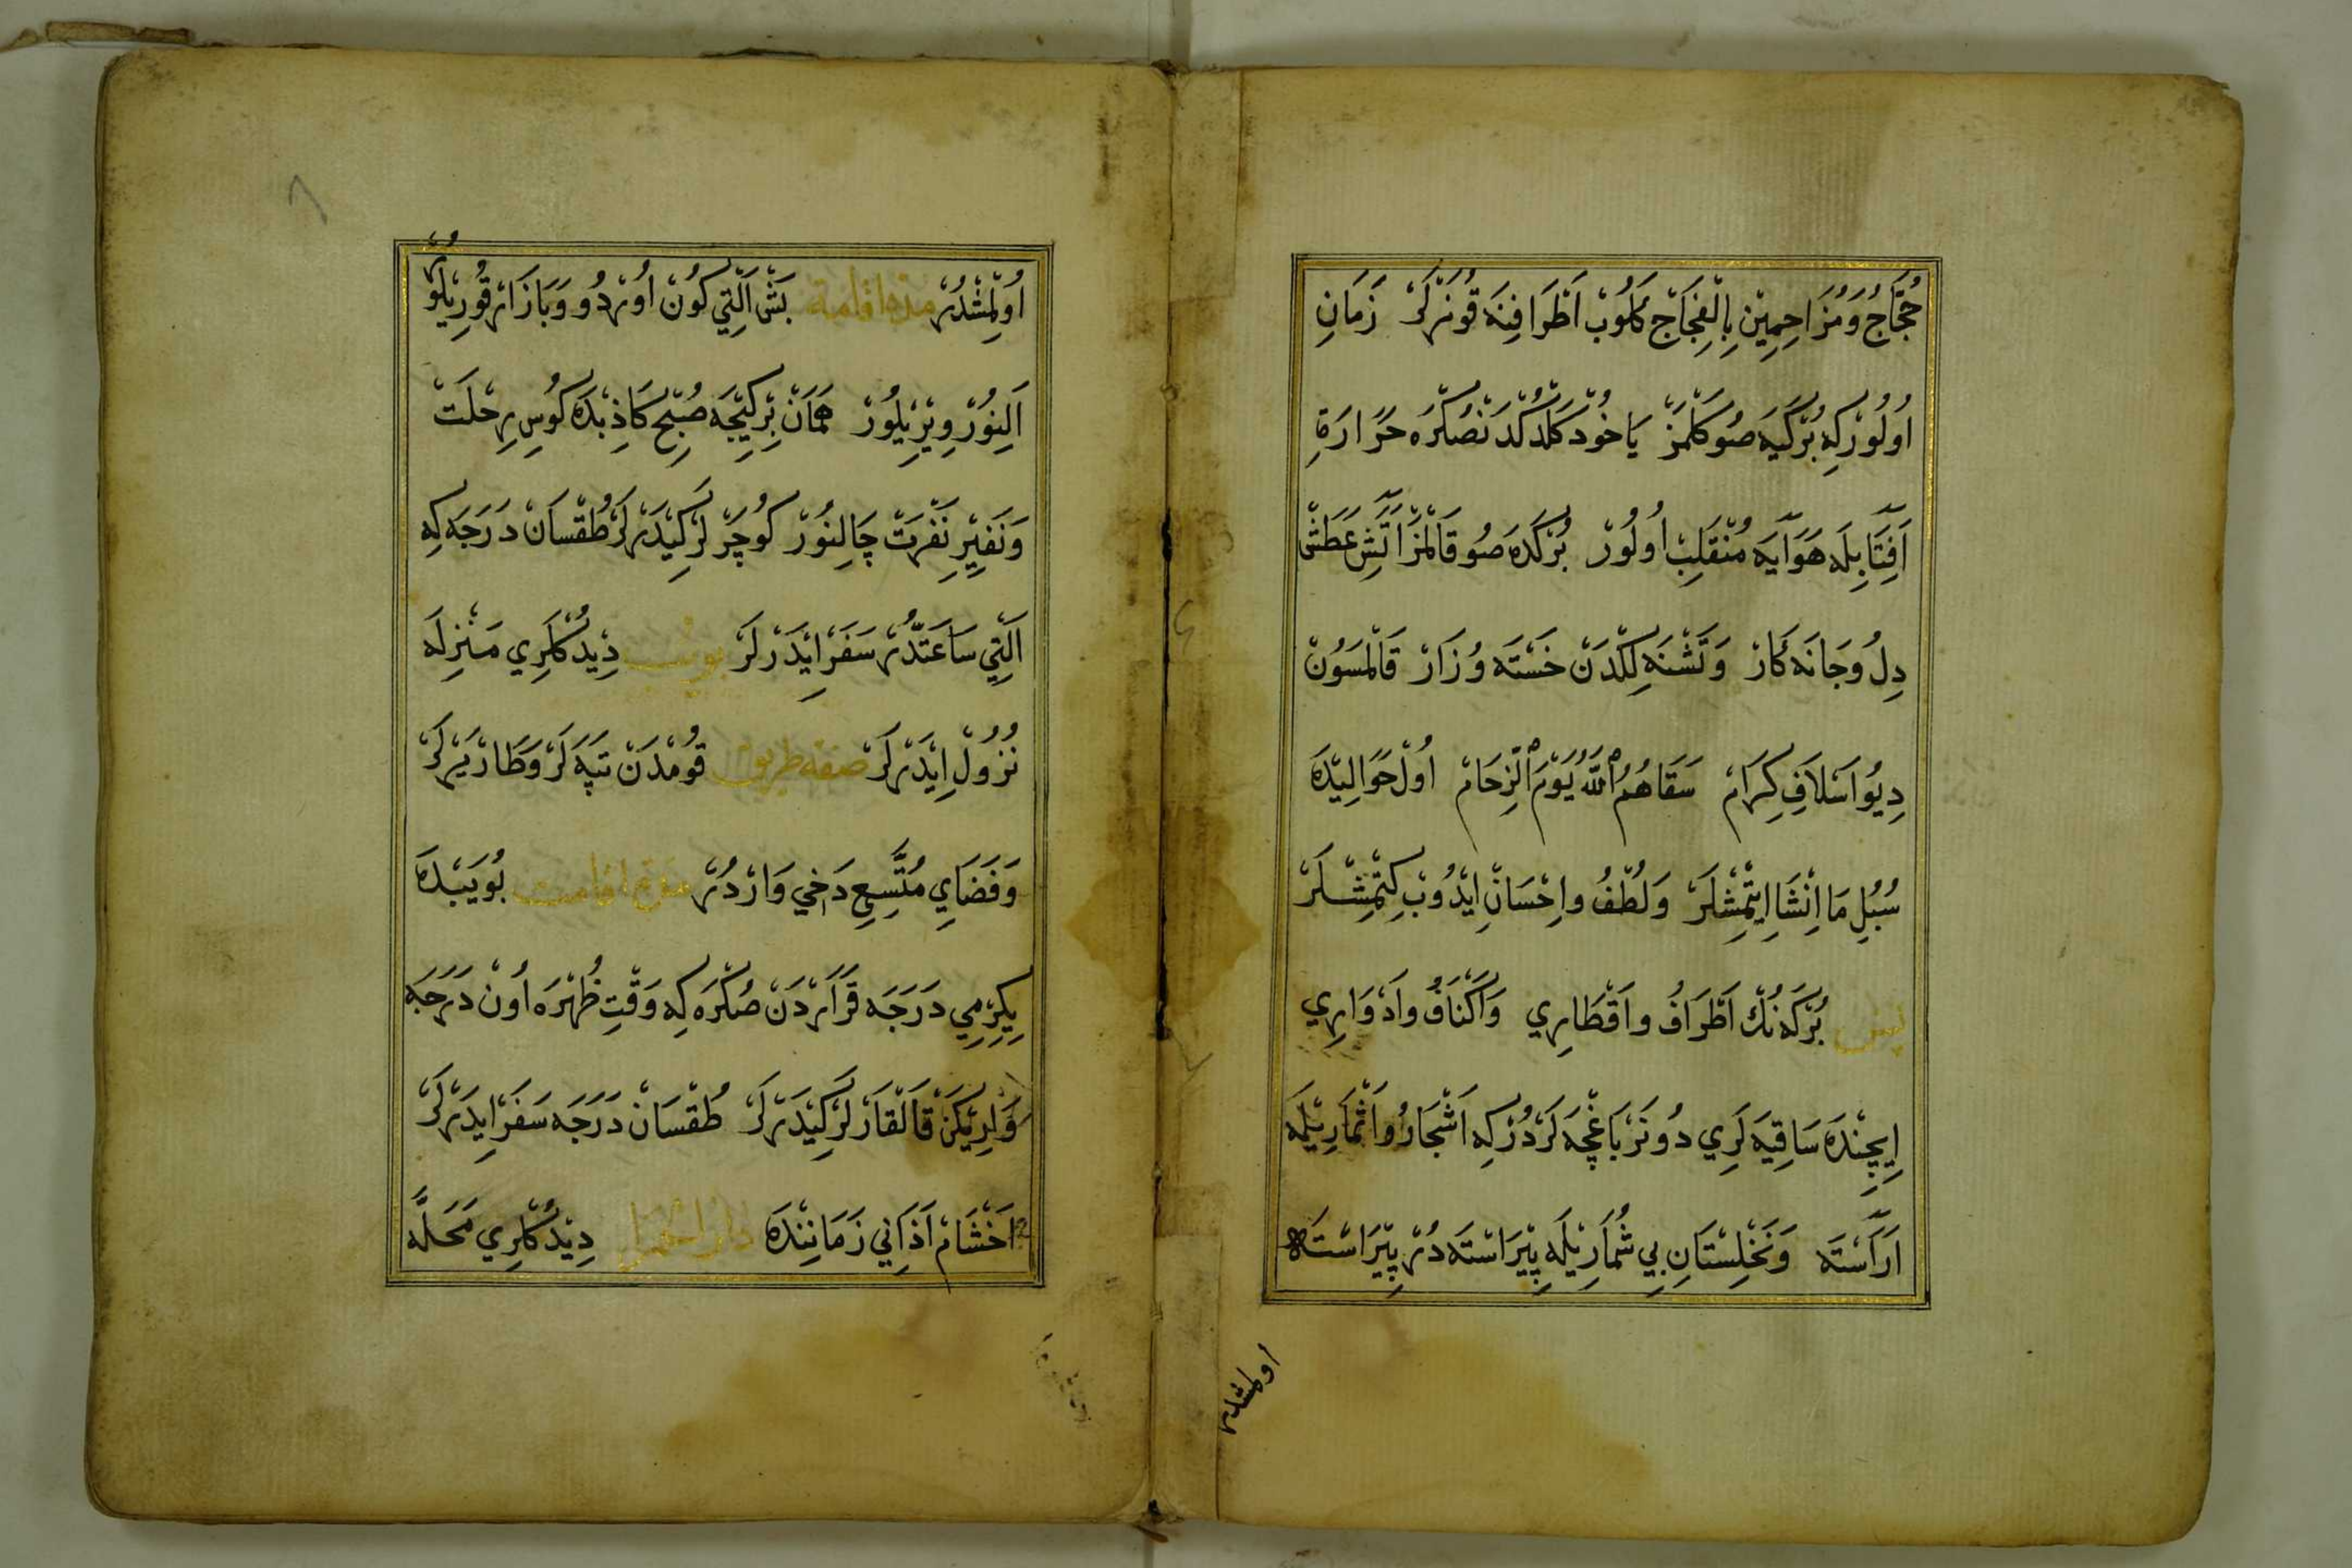 حُجَّاجُ وَمُزَاحِمِيْنِ بِالْفِجَاجِ كَلُوبْ اَطْرَافِنَه قُونَرْلَرْ زَمَانِ
اُولُورْكِه بُرْكَيَه صُو كَلْمَزْ يَا خُوْد كَلْدُكْدَنْصُكْرَه حَرَارَةِ
اَفِتَابِيلَه هَوَايَه مُنْقَلِبْ اُولُورْ بُرْكَدَه صُو قَالْمَزْ اَتَشِ عَطَشْ
دِلُ وَجَانَه كَارْ وَتَشْنَه لِكْدَنْ خَسْتَه وُ زَارْ قَالْمَسَوُنْ
دِيُو اَسْلَافِ كِرَامْ سَقَاهُمُ اللّٰهُ يَوْمَ الزِّحَامْ اُولْ حَوَالِيْدَه
سُبُلِ مَا اِنْشَا اِيتْمِشْلَرْ وَلُطْفُ واِحْسَانْ اِيْدُوبْ كِتْمِشْلَرْ
پس بُرْكَه نُكْ اَطْرَافُ واَقْطَارِي وَاَكْنَافُ واَدْوَارِي
اِيچِنْدَه سَاقِيَه لَرِي دُونَرْ بَاغْچَه لَرْدُرْكِه اَشْجَارُ واَثْمَارِيْلَه
اَرَاَسْتَه وَنَخْلِسْتَانِ بِي شُمَارِيْلَه پِيْرَاسْتَه دُرْ پِيْرَاسْتَه
اولمشدر
اُولمِشْدُرْ مدة اقامة بَشْ اَلْتِي كُونْ اُورْدُو وَبَازَارْ قُورِيْلُورْ
اَلِنُورْ وِيْرِيْلُورْ هَمَانْ بِرْكِيْجَه صُبْحِ كَاذِبْدَه كُوسِ رِحْلَتْ
وَنَفِيْرِ نَفْرَتْ چَالِنُورْ كُوچَرْلَرْ كِيْدَرْلَرْ طُقْسَانْ دَرَجَه كِه
اَلْتِي سَاعَتْدُرْ سَفَرْ اِيْدَرْلَرْ بويب دِيْدُكْلَرِي مَنْزِلَه
نُزُولْ اِيْدَرْلَرْ صفه طريق قُومْدَنْ تَپَه لَرْ وَطَارْ يَرْلَرْ
وَفَضَايِ مُتَّسِعِ دَخِي وَارْدُرْ مدة اقامت بُوَيَبْدَه
يِكِرْمِي دَرَجَه قَرَارْدَنْ صُكْرَه كِه وَقْتِ ظُهْرَه اُونْ دَرَجَه
وَارِيْكَنْ قَالْقَارْلَرْ كِيْدَرْلَرْ طُقْسَانْ دَرَجَه سَفَرْ اِيْدَرْلَرْ
اَخْشَامْ اَذَانِي زَمَانِنْدَه دار الحمرا دِيْدُكْلَرِي مَحَلَّه